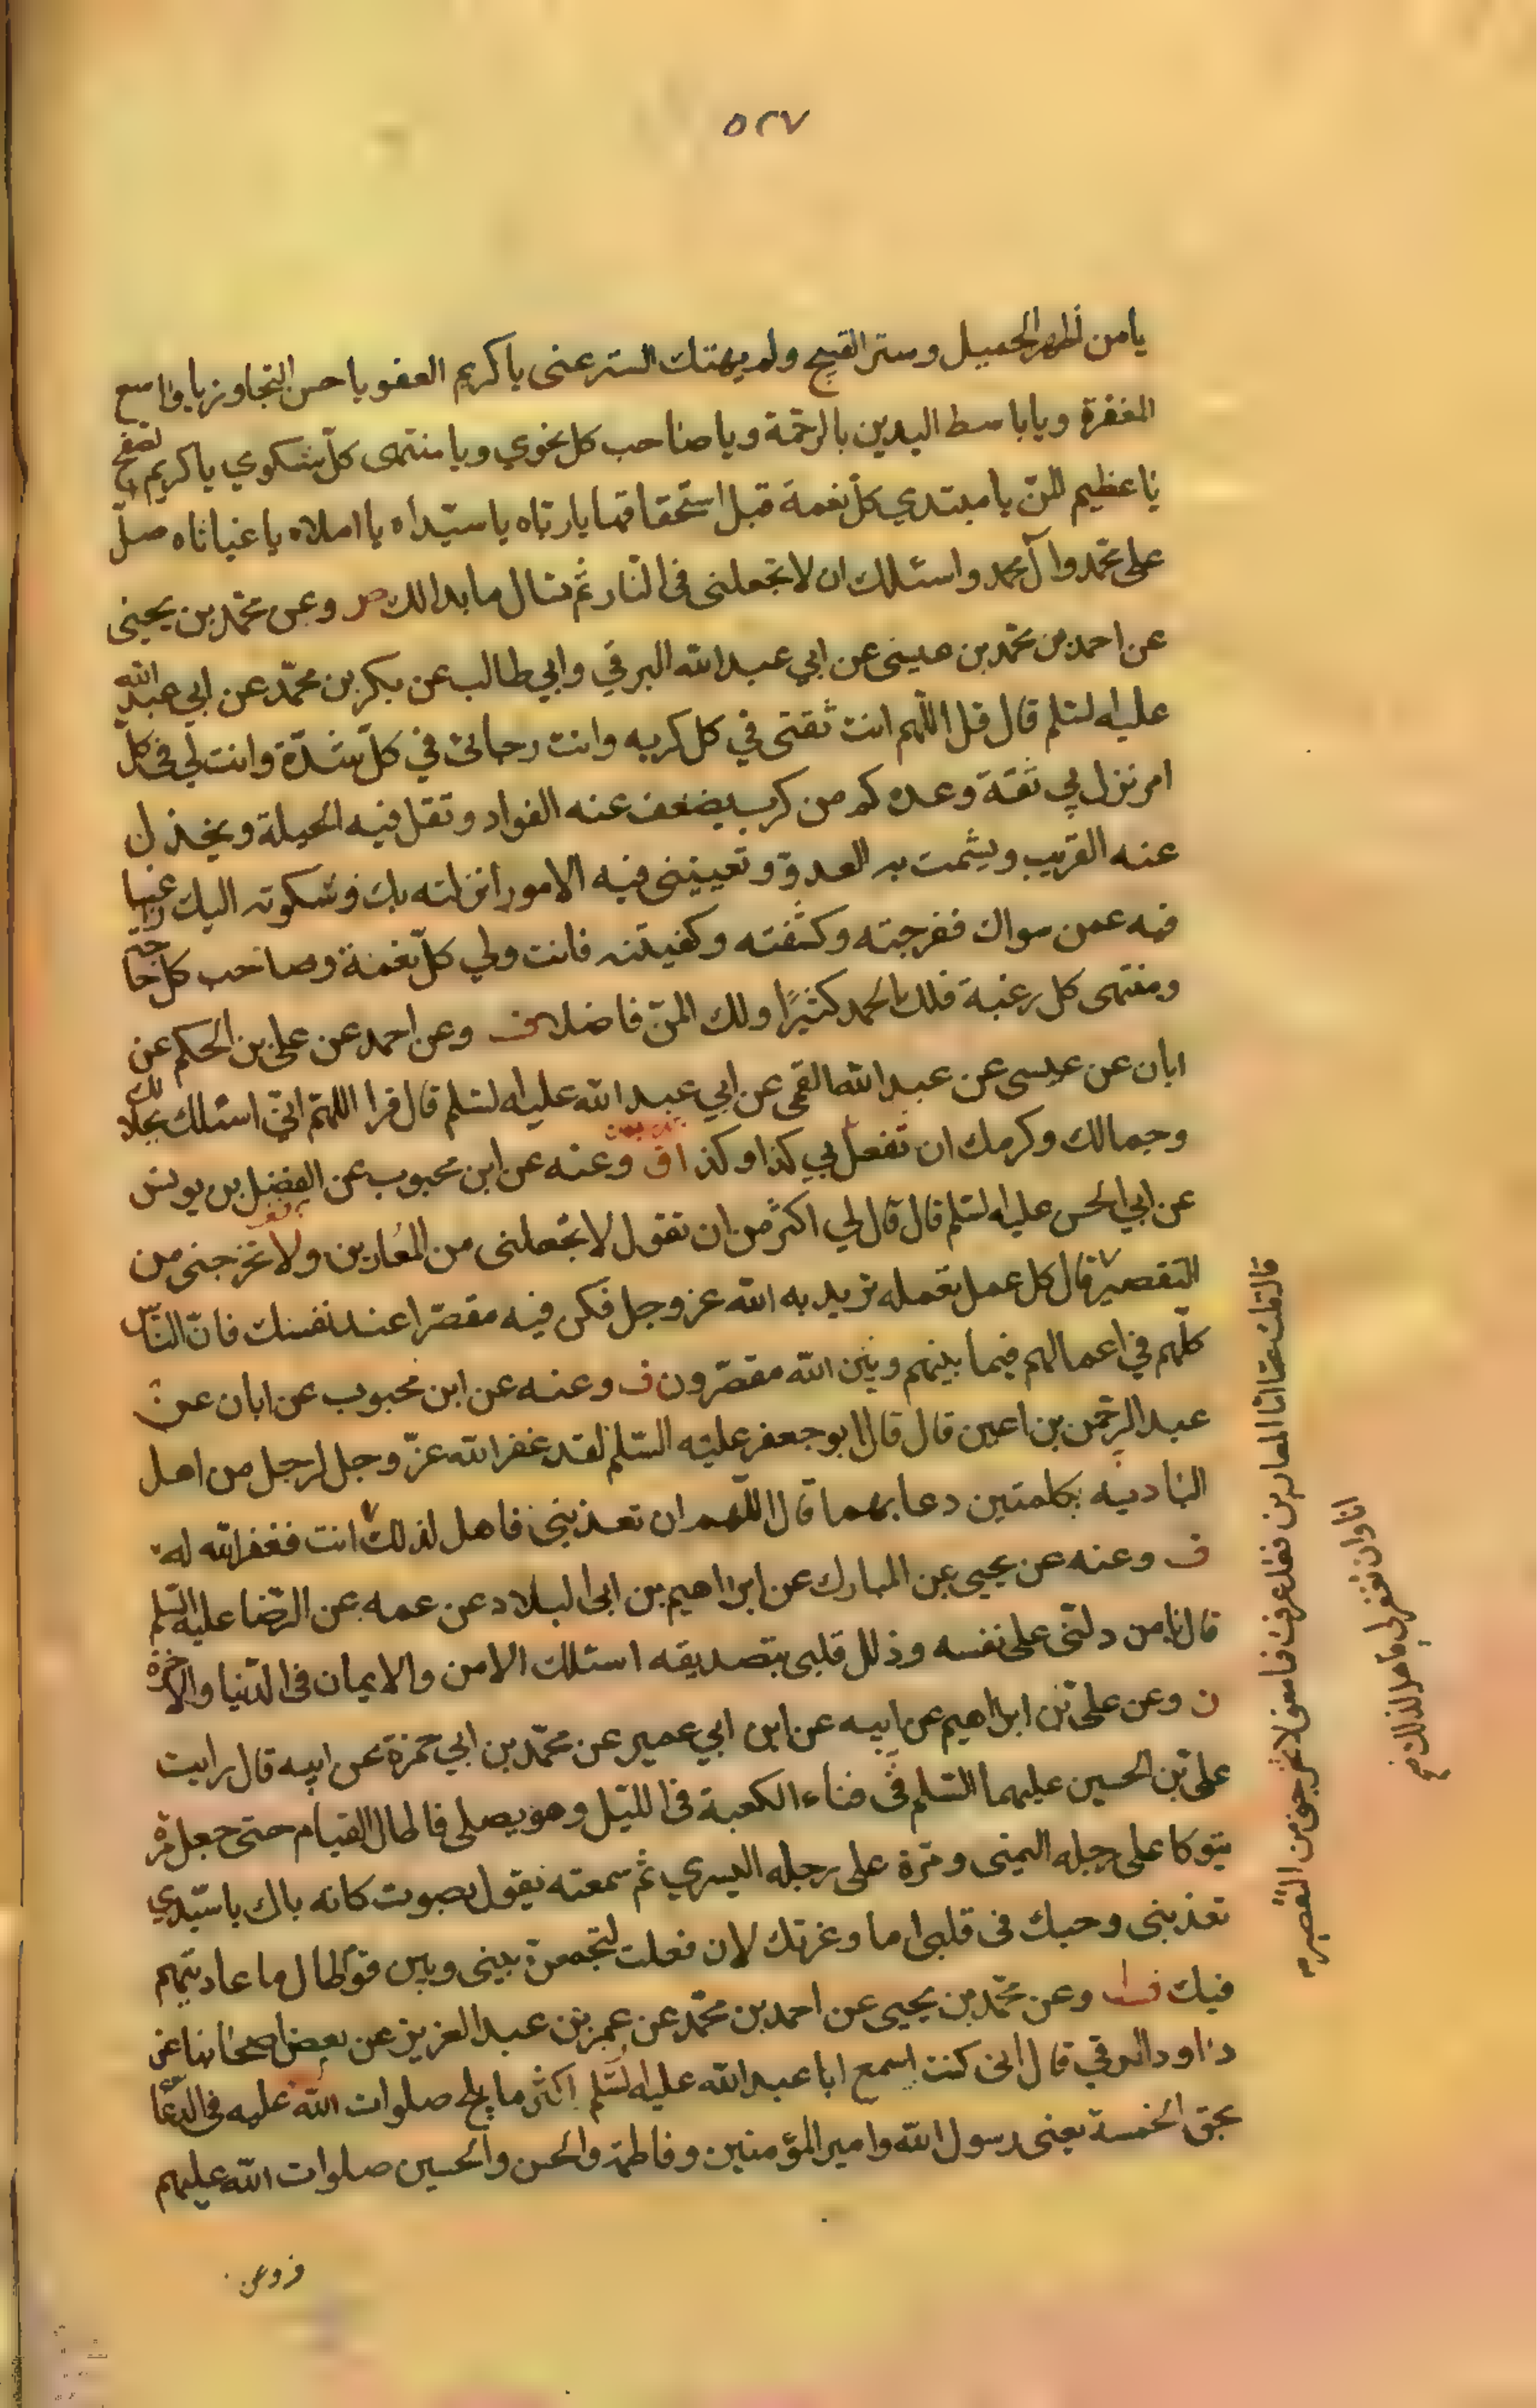 ٥٢٧
يا من اظهر الجميل وستر القبيح ولم يهتك الستر عنى يا كريم العفو يا حسن التجاوز يا واسع
المغفرة ويا باسط اليدين بالرحمة ويا صاحب كل نجوي ويا منتهى كلّ شكوي يا كريم الصفح
يا عظيم المنّ يا مبتدي كلّ نعمة قبل استحقاقها يا ربّاه يا سيّداه يا املاه يا غياثاه صلّ
على محمّد وآل محمد واسئلك ان لا تجعلنى فى النّار ثم تسال ما بدا لك ص وعن محمّد بن يحيى
عن احمد بن محمّد بن عيسى عن ابي عبد الله البرقي وابي طالب عن بكر بن محمّد عن ابي عبد الله
عليه السلم قال قل اللّهم انت ثقتى في كل كربه وانت رجائى في كلّ شدّة وانت لي فى كلّ
امر نزل بي ثقة وعده كم من كرب يضعف عنه الفواد وتقل فيه الحيلة ويخذل
عنه القريب ويشمت به العدوّ وتعيينى فيه الامور انزلته بك وشكوته اليك راغبا
فيه عمن سواك ففرجته وكشفته وكفيتنه فانت ولي كلّ نعمة وصاحب كل حاجة
ومنتهى كل رغبة فلك الحمد كثيرًا ولك المنّ فاضلا ف وعن احمد عن على بن الحكم عن
ابان عن عيسى عن عبد الله القمى عن ابي عبد الله عليه السلم قال قرا اللهمّ انّي اسئلك بجلالك
وجمالك وكرمك ان تفعل بي كذا وكذا ق وعنه عن ابن محبوب عن الفضل بن يونس
عن ابي الحسن عليه السلم قال قال لي اكثر من ان تقول لا تجعلنى من المُعارين ولا تخرجنى من
التقصير قال كل عمل تعمله تريد به الله عز وجل فكن فيه مقصّرا عند نفسك فانّ النّاس
كلّهم في اعمالهم فيما بينهم وبين الله مقصّرون ف وعنه عن ابن محبوب عن ابان عن
عبد الرحمن بن اعين قال قال ابو جعفر عليه السّلم لقد غفر الله عزّ وجل لرجل من اهل
البادية بكلمتين دعا بهما قال اللّهم ان تعذبنى فاهل لذلك انت فغفر الله له
ف وعنه عن يحيى بن المبارك عن ابراهيم بن ابى البلاد عن عمه عن الرّضا عليه السّلم
قال يا من دلّنى على نفسه وذلل قلبى بتصديقه اسئلك الامن والايمان فى الدّنيا والاخرة
ن وعن على بن ابراهيم عن ابيه عن ابن ابي عمير عن محمّد بن ابي حمزة عن ابيه قال رايت
على بن الحسين عليهما السّلم في فناء الكعبة فى اللّيل وهو يصلى فاطال القيام حتى جعل مرّة
يتوكا على رجله اليمنى ومرّة على رجله اليسري ثم سمعته يقول بصوت كانه باك يا سيّدي
تعذبنى وحبك فى قلبى اما وعزتك لان فعلت لتجمعنّ بينى وبين قوم طال ما عاديتهم
فيك وعن محمّد بن يحيى عن احمد بن محمّد عن عمر بن عبد العزيز عن بعض اصحابنا عن
داود الرقي قال انى كنت اسمع ابا عبد الله عليه السّلم اكثر ما يلح صلوات الله عليه فى الدّعاء
بحق الخمسة يعنى رسول الله وامير المؤمنين وفاطمة والحسن والحسين صلوات الله عليهم
ف وعن
قال قلت امّا المعارين فقد اعرف فما معنى لا تخرجنى من التقصير
انا وان تغفر لى فاهل لذلك صح